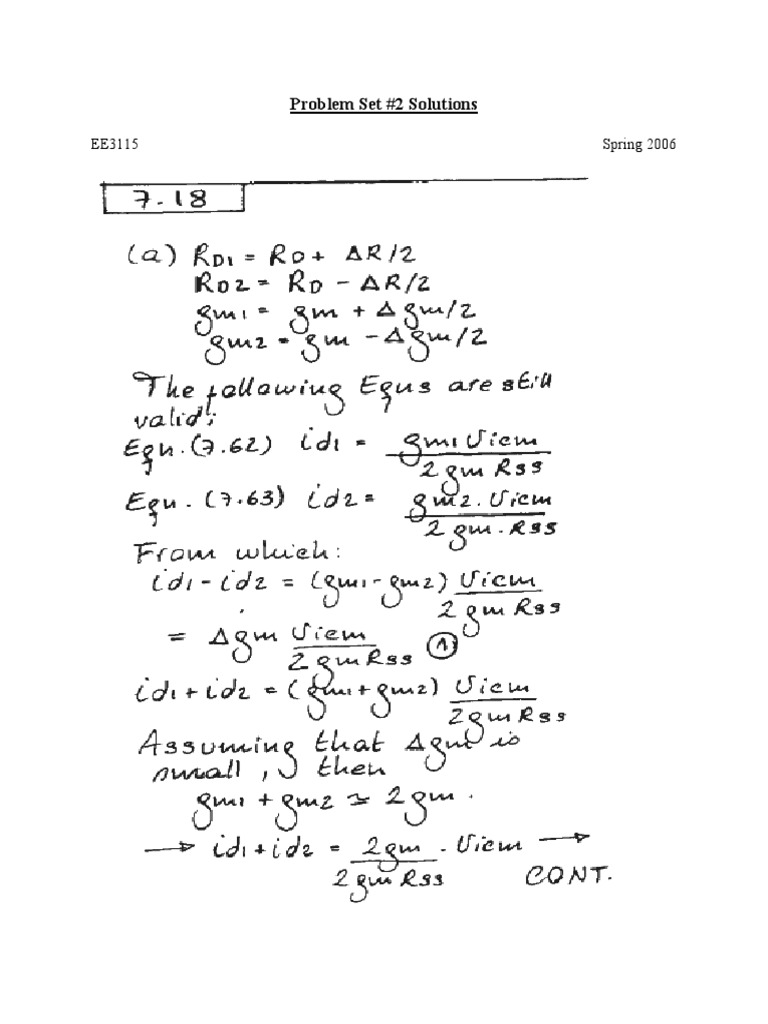 Problem Set #2 Solutions
EE3115 Spring 2006
7.18
(a) RD1 = RD + ΔR/2
RD2 = RD - ΔR/2
gm1 = gm + Δgm/2
gm2 = gm - Δgm/2
The following Eqns are still
valid;
Eqn. (7.62) id1 = gm1 Vicm / 2 gm Rss
Eqn. (7.63) id2 = gm2. Vicm / 2 gm. Rss
From which:
id1 - id2 = (gm1 - gm2) Vicm / 2 gm Rss
= Δgm Vicm / 2 gm Rss (1)
id1 + id2 = (gm1 + gm2) Vicm / 2 gm Rss
Assuming that Δgm is
small, then
gm1 + gm2 ≃ 2 gm.
→ id1 + id2 = 2 gm . Vicm / 2 gm Rss →
CONT.